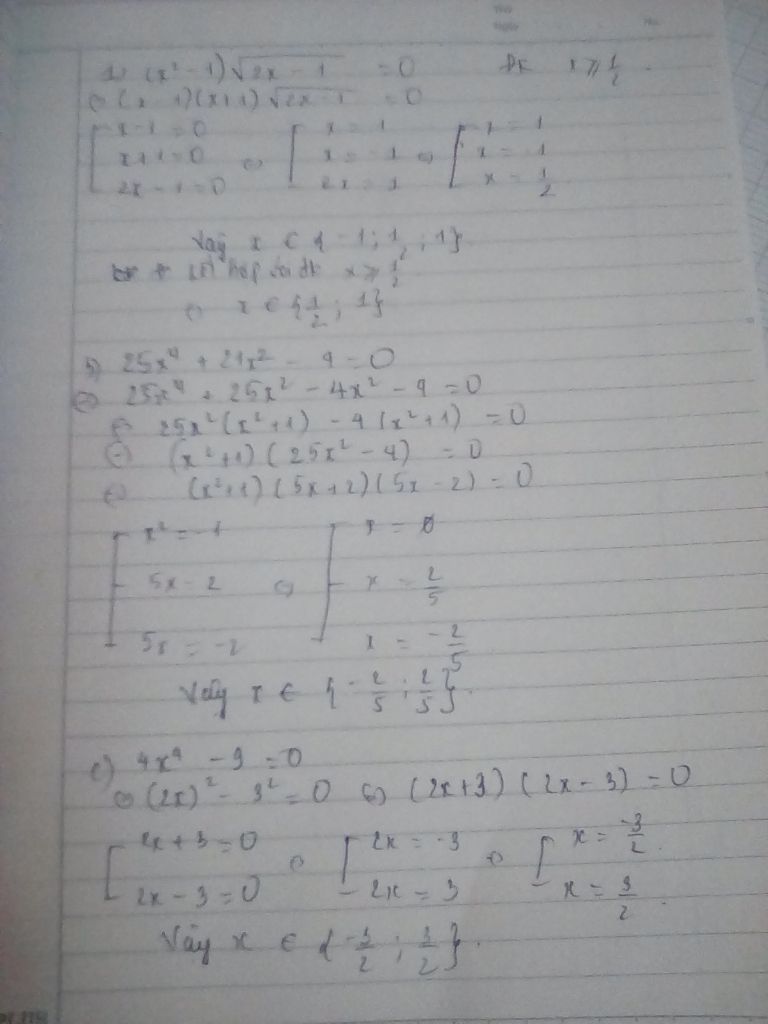 1) (x² - 1)√2x - 1 = 0 ĐK x ≥ 1/2.
⇔ (x - 1)(x+1) √2x - 1 = 0
[ x - 1 = 0 ⇔ [ x = 1 ⇔ [ x = 1
x + 1 = 0 x = -1 x = -1
2x - 1 = 0 2x = 1 x = 1/2
Vậy x ∈ { -1; 1/2; 1}
hợp với đk x ≥ 1/2
⇔ x ∈ {1/2; 1}
b) 25x⁴ + 21x² - 4 = 0
⇔ 25x⁴ + 25x² - 4x² - 4 = 0
⇔ 25x²(x²+1) - 4(x²+1) = 0
⇔ (x²+1)(25x² - 4) = 0
⇔ (x²+1)(5x+2)(5x-2) = 0
[ x² = -1 [ x = ∅
5x = 2 ⇔ x = 2/5
5x = -2 x = -2/5
Vậy x ∈ {-2/5; 2/5}.
c) 4x⁴ - 9 = 0
⇔ (2x)² - 3² = 0 ⇔ (2x+3)(2x-3) = 0
[ 2x + 3 = 0 ⇔ [ 2x = -3 ⇔ [ x = -3/2.
2x - 3 = 0 2x = 3 x = 3/2.
Vậy x ∈ {-3/2; 3/2}.